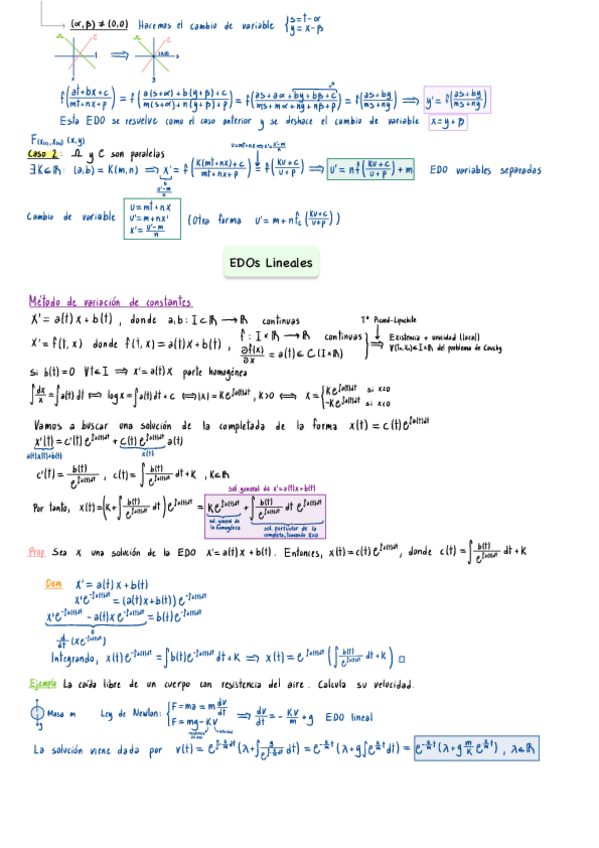 (α, β) ≠ (0,0) Hacemos el cambio de variable { s = t - α
y = x - β
f((at+bx+c)/(mt+nx+p)) = f((a(s+α)+b(y+β)+c)/(m(s+α)+n(y+β)+p)) = f((as+aα+by+bβ+c)/(ms+mα+ny+nβ+p)) = f((as+by)/(ms+ny)) ⟹ y' = f((as+by)/(ms+ny))
Esta EDO se resuelve como el caso anterior y se deshace el cambio de variable x = y + β
Caso 2: r y s son paralelas
∃ K∈ℝ: (a,b) = K(m,n) ⟹ x' = f((K(mt+nx)+c)/(mt+nx+p)) = f((Ku+c)/(u+p)) ⟹ u' = nf((Ku+c)/(u+p)) + m EDO variables separadas
Cambio de variable
u = mt+nx
u' = m+nx'
x' = (u'-m)/n
(Otra forma u' = m + nf((Ku+c)/(u+p)))
EDOs Lineales
Método de variación de constantes
x' = a(t)x + b(t), donde a,b: I⊂ℝ ⟶ ℝ continuas
Tª Picard-Lipschitz
x' = f(t,x) donde f(t,x) = a(t)x + b(t), f: I×ℝ ⟶ ℝ continuas
∂f(x)/∂x = a(t) ∈ C(I×ℝ)
⟹ Existencia + unicidad (local)
∀(t₀,x₀)∈I×ℝ del problema de Cauchy
Si b(t)=0 ∀t∈I ⟹ x' = a(t)x parte homogénea
∫dx/x = ∫a(t)dt ⟺ log x = ∫a(t)dt + c ⟺ |x| = Ke^{∫a(t)dt}, K>0 ⟺ x = { Ke^{∫a(t)dt} si x>0
-Ke^{∫a(t)dt} si x<0
Vamos a buscar una solución de la completa de la forma x(t) = c(t)e^{∫a(t)dt}
x'(t) = c'(t)e^{∫a(t)dt} + c(t)e^{∫a(t)dt} a(t)
a(t)x(t)+b(t) x(t)
c'(t) = b(t)/e^{∫a(t)dt}, c(t) = ∫ b(t)/e^{∫a(t)dt} dt + K, K∈ℝ
sol. general de x'=a(t)x+b(t)
Por tanto, x(t) = (K + ∫ b(t)/e^{∫a(t)dt} dt) e^{∫a(t)dt} = Ke^{∫a(t)dt} + ∫ b(t)/e^{∫a(t)dt} dt e^{∫a(t)dt}
sol. general de la homogénea
sol. particular de la completa, tomando K=0
Prop Sea x una solución de la EDO x' = a(t)x + b(t). Entonces, x(t) = c(t)e^{∫a(t)dt}, donde c(t) = ∫ b(t)/e^{∫a(t)dt} dt + K
Dem x' = a(t)x + b(t)
x'e^{-∫a(t)dt} = (a(t)x + b(t))e^{-∫a(t)dt}
x'e^{-∫a(t)dt} - a(t)xe^{-∫a(t)dt} = b(t)e^{-∫a(t)dt}
d/dt (xe^{-∫a(t)dt})
Integrando, x(t)e^{-∫a(t)dt} = ∫b(t)e^{-∫a(t)dt}dt + K ⟹ x(t) = e^{∫a(t)dt} (∫ b(t)/e^{∫a(t)dt} dt + K) □
Ejemplo La caída libre de un cuerpo con resistencia del aire. Calcula su velocidad.
Masa m Ley de Newton: { F = ma = m dv/dt
F = mg - Kv
⟹ dv/dt = -Kv/m + g EDO lineal
La solución viene dada por v(t) = e^{∫-K/m dt}(λ + ∫ g/e^{∫-K/m dt} dt) = e^{-K/m t}(λ + g∫e^{K/m t}dt) = e^{-K/m t}(λ + g m/K e^{K/m t}), λ∈ℝ